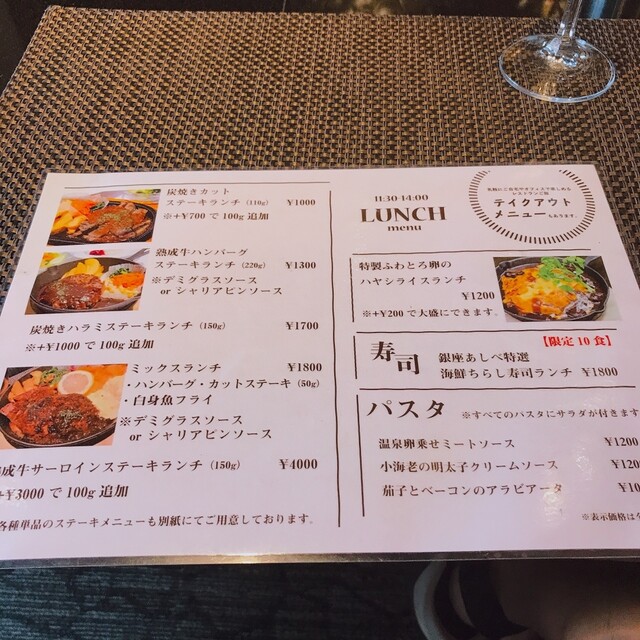 炭焼きカット
ステーキランチ (110g) ¥1000
※+¥700で100g追加
熟成牛ハンバーグ
ステーキランチ (220g) ¥1300
※デミグラスソース
or シャリアピンソース
炭焼きハラミステーキランチ (150g) ¥1700
※+¥1000で100g追加
ミックスランチ ¥1800
・ハンバーグ・カットステーキ (50g)
・白身魚フライ
※デミグラスソース
or シャリアピンソース
成牛サーロインステーキランチ (150g) ¥4000
+¥3000で100g追加
各種単品のステーキメニューも別紙にてご用意しております。
11:30-14:00
LUNCH
menu
テイクアウト
メニューもあります。
特製ふわとろ卵の
ハヤシライスランチ
¥1200
※+¥200で大盛にできます。
寿司
【限定10食】
銀座あしべ特選
海鮮ちらし寿司ランチ ¥1800
パスタ ※すべてのパスタにサラダが付きます
温泉卵乗せミートソース ¥1200
小海老の明太子クリームソース ¥120
茄子とベーコンのアラビアータ ¥10
※表示価格は